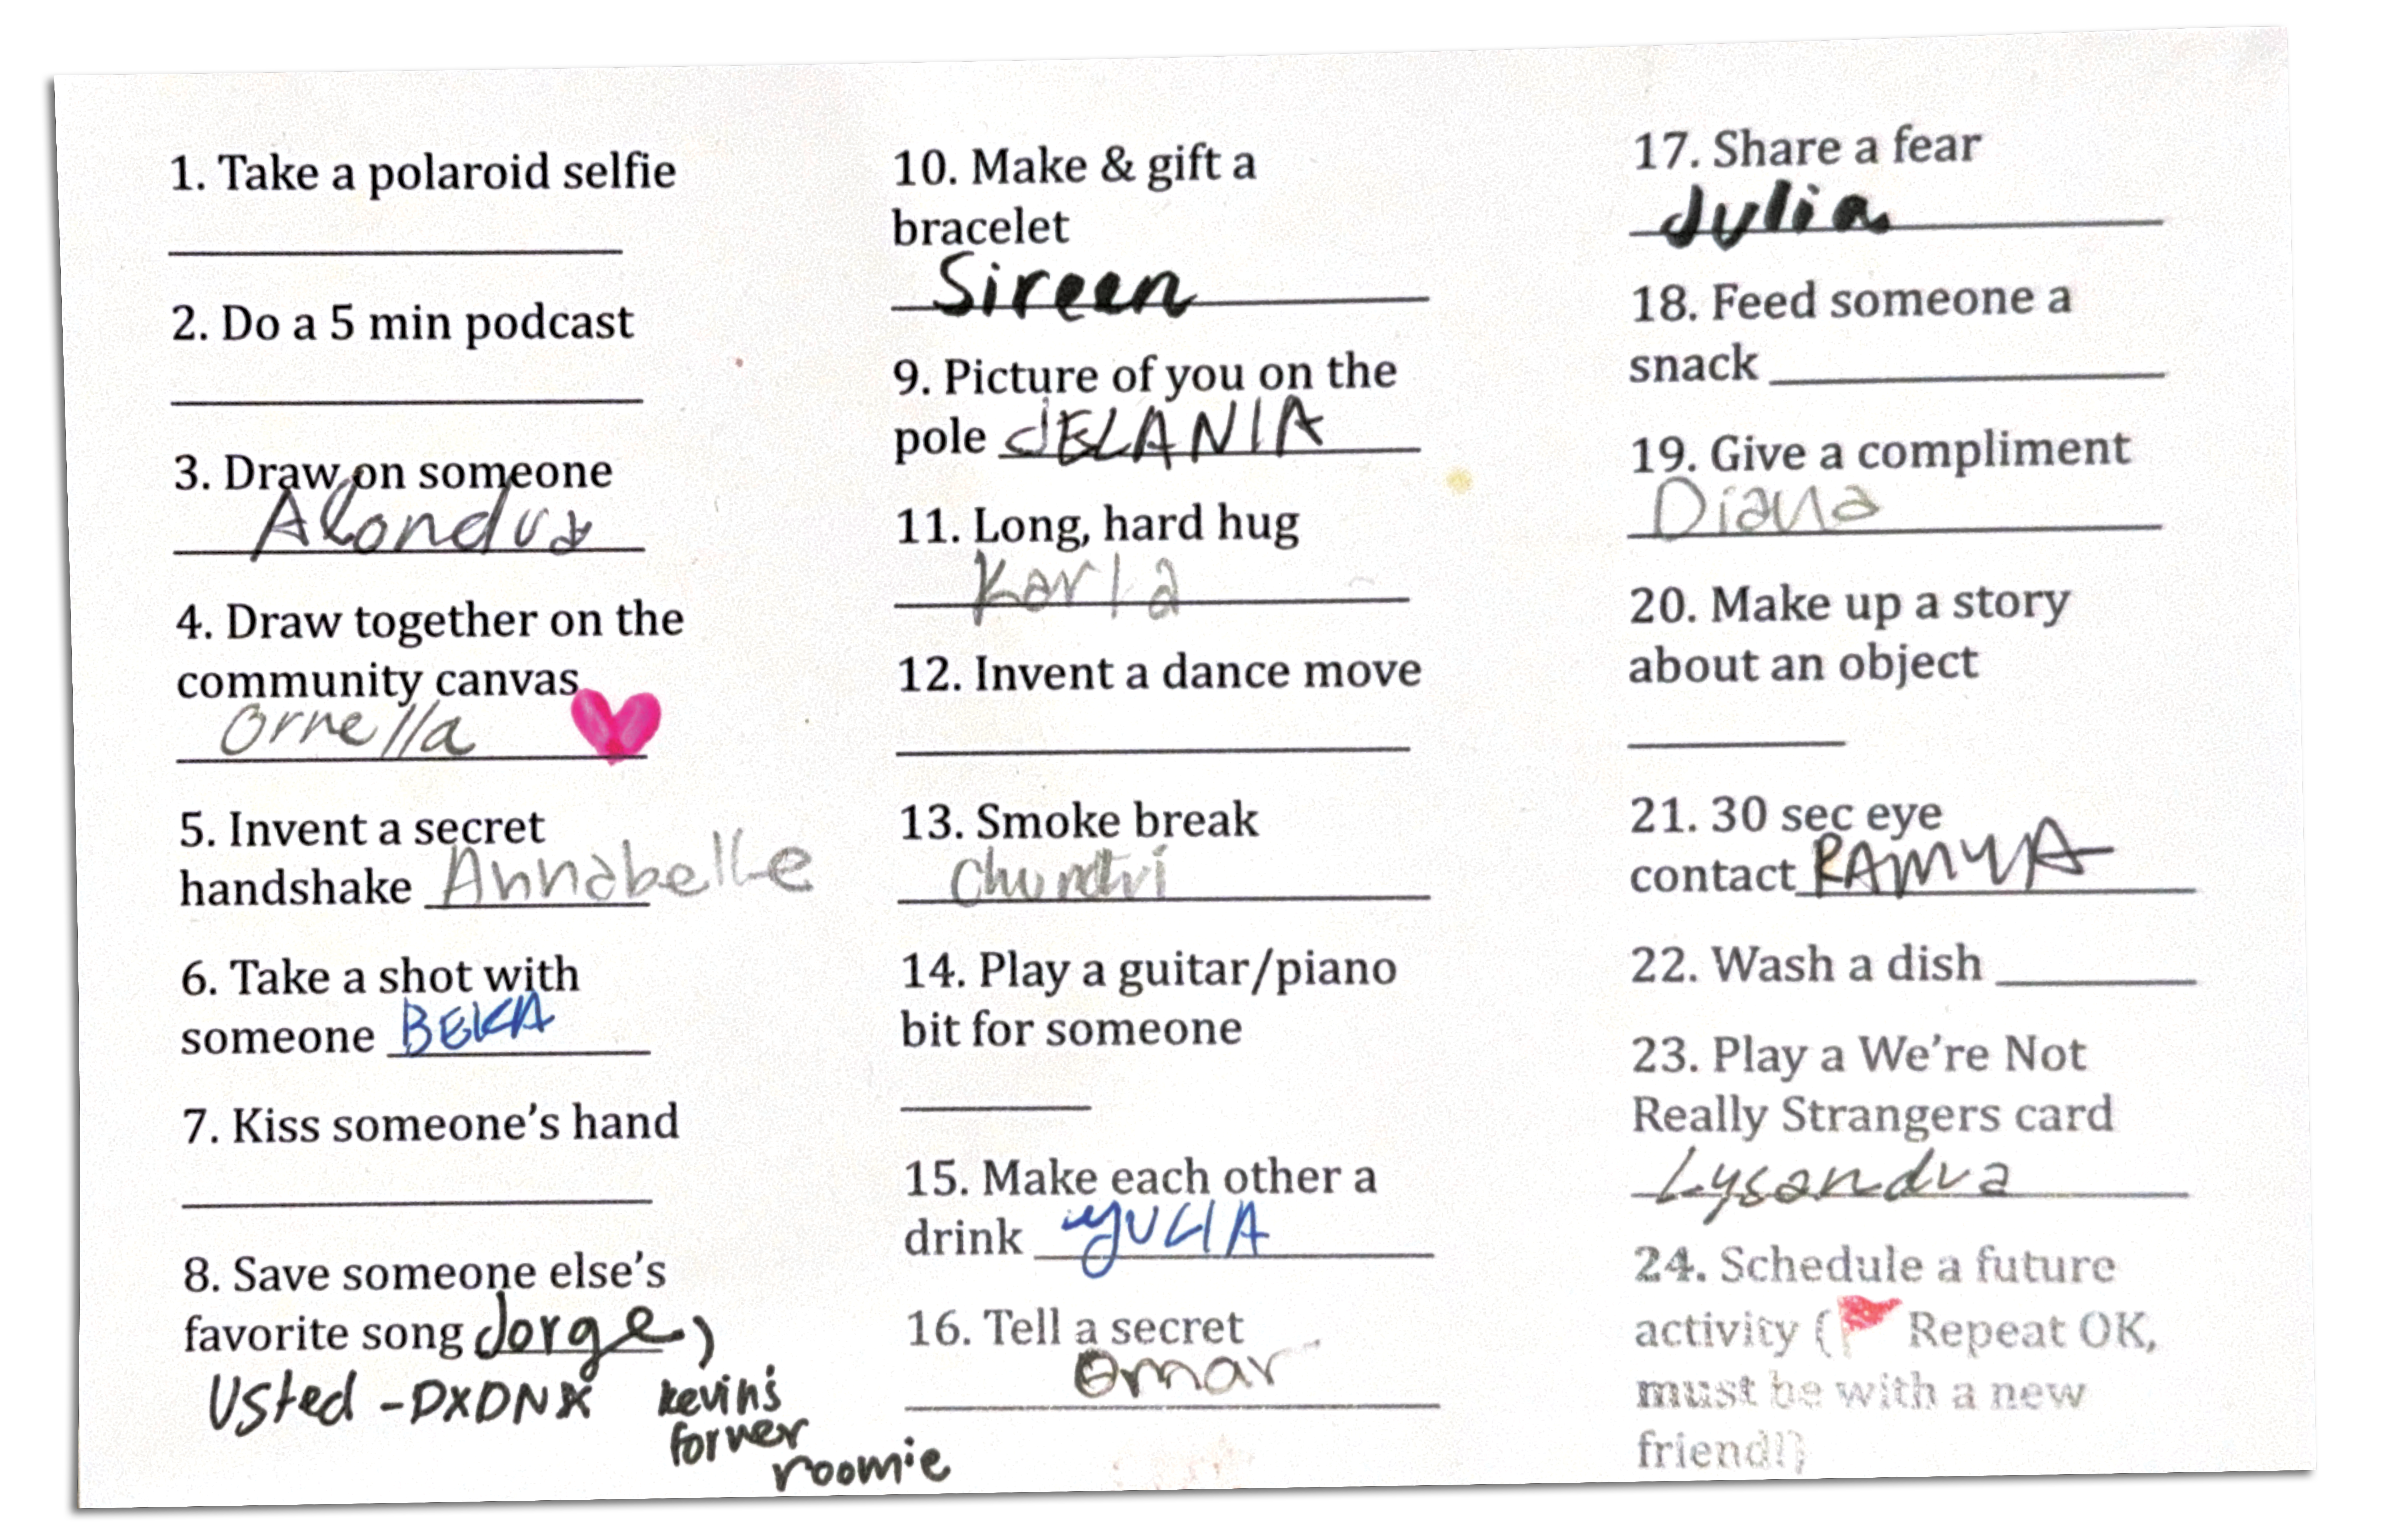 1. Take a polaroid selfie
2. Do a 5 min podcast
3. Draw on someone
Alondra
4. Draw together on the
community canvas
Ornella
5. Invent a secret
handshake Annabelle
6. Take a shot with
someone BEKA
7. Kiss someone's hand
8. Save someone else's
favorite song Jorge,
Usted - DXDNX kevin's
former
roomie
10. Make & gift a
bracelet
Sireen
9. Picture of you on the
pole JELANIA
11. Long, hard hug
Karla
12. Invent a dance move
13. Smoke break
14. Play a guitar/piano
bit for someone
15. Make each other a
drink YULIA
16. Tell a secret
Omar
17. Share a fear
Julia
18. Feed someone a
snack
19. Give a compliment
Diana
20. Make up a story
about an object
21. 30 sec eye
contact RAMYA
22. Wash a dish
23. Play a We're Not
Really Strangers card
Lysandra
24. Schedule a future
activity (🚩 Repeat OK,
must be with a new
friend!)